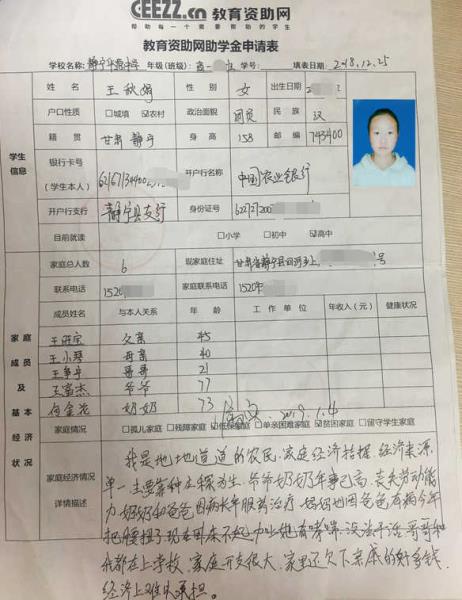 CEEZZ.cn 教育资助网
帮助每一个需要帮助的学生
教育资助网助学金申请表
学校名称: 静宁 年级(班级): 高一 学号: 填表日期: 2018.12.25
学生信息
姓名 王秋娟 性别 女 出生日期
户口性质 □城填 ☑农村 政治面貌 团员 民族 汉
籍贯 甘肃 静宁 身高 158 邮编 743400
银行卡号 (学生本人) 62167134400 开户行名称 中国农业银行
开户行支行 静宁县支行 身份证号
目前就读 □小学 □初中 ☑高中
家庭成员及基本经济状况
家庭总人数 6 现家庭住址 甘肃省静宁县 号
联系电话 1520 家庭联系电话 1520
成员姓名 与本人关系 年龄 工作单位 年收入(元) 健康状况
王 宝 父亲 45
王小琴 母亲 40
王 平 哥哥 21
王富杰 爷爷 77
奶奶 73
2019.1.4
家庭情况 □孤儿家庭 □残障家庭 ☑低保家庭 □单亲困难家庭 ☑贫困家庭 □留守学生家庭
家庭经济情况详情描述
我是地地道道的农民,家庭经济拮据,经济来源
单一主要靠种庄稼为生,爷爷奶奶年事已高,丧失劳动能
力奶奶和爸爸因病长年服药治疗,妈妈也因爸爸有病今年
把腰扭了现在回来不起,加上她有 没法干活,哥哥和
我都在上学校,家庭开支很大,家里还欠下亲戚的好多钱,
经济上难以承担。